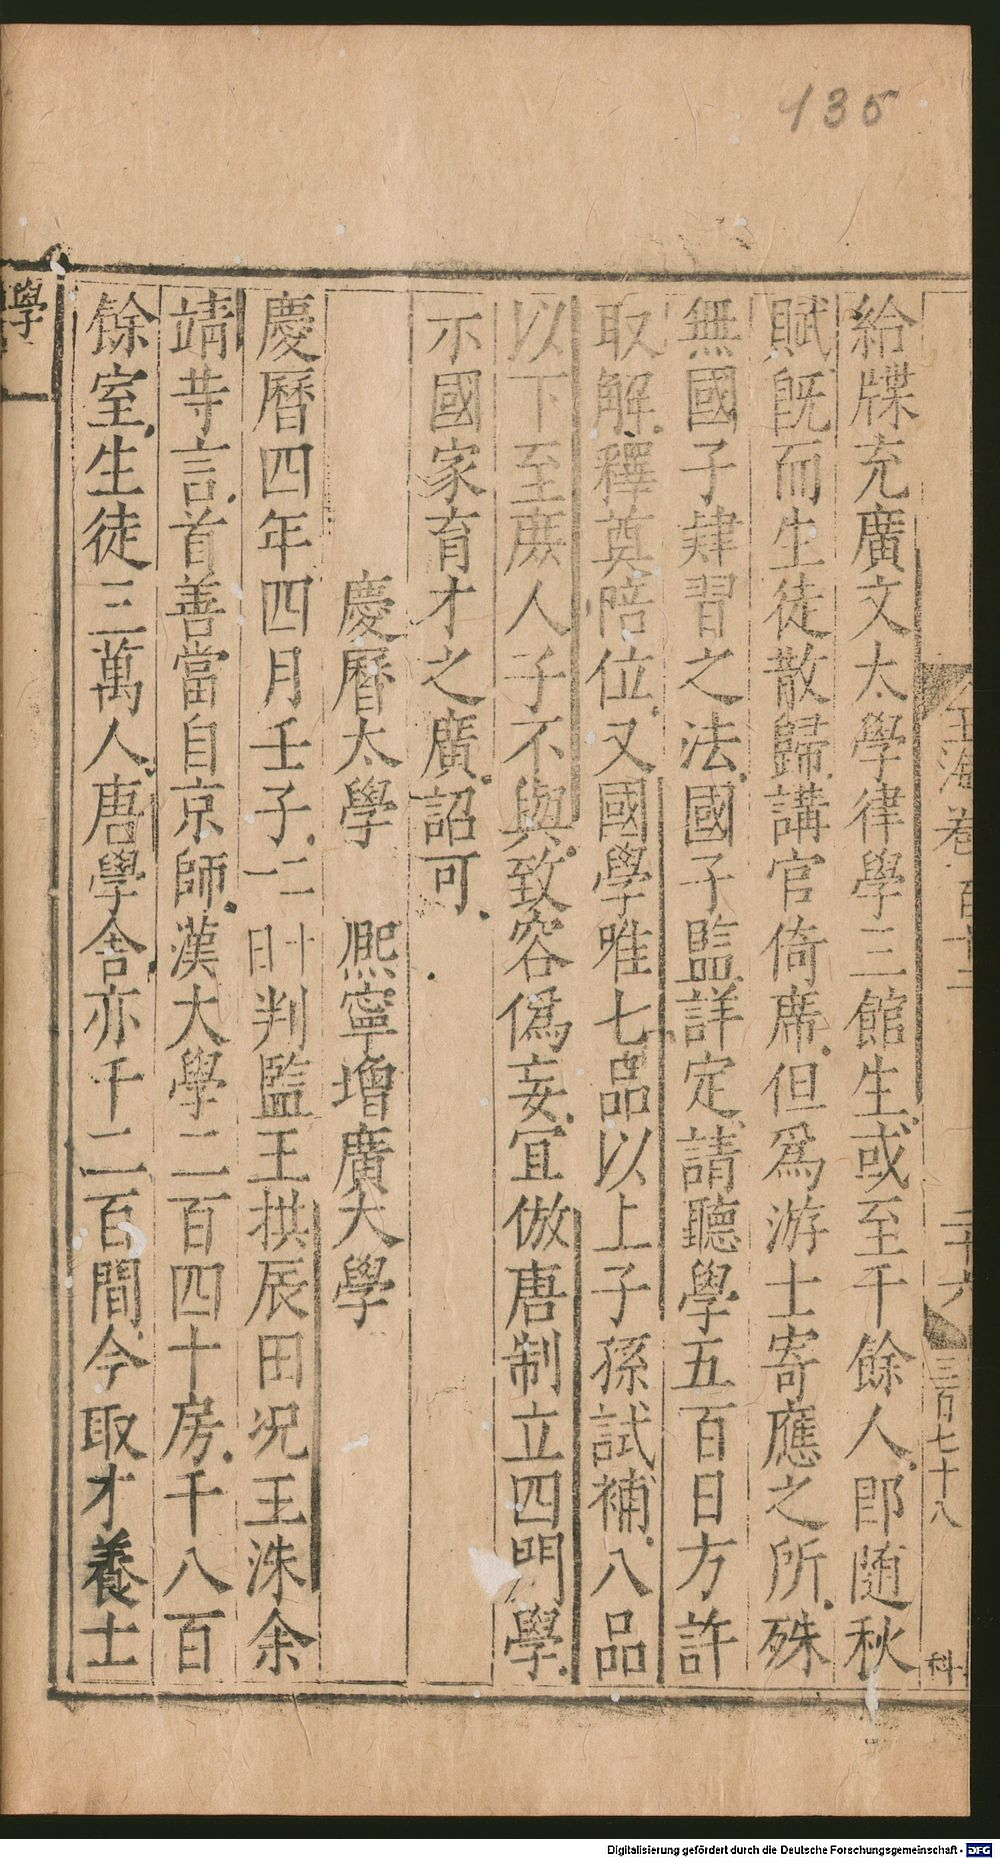 135
玉海卷一百十二
二十六
三百七十八
科
給牒充廣文太學律學三館生或至千餘人即随秋
賦既而生徒散歸講官倚席但爲游士寄應之所殊
無國子肄習之法國子監詳定請聽學五百日方許
取解釋奠陪位又國學唯七品以上子孫試補八品
以下至庻人子不與致容僞妄冝倣唐制立四門學
示國家育才之廣詔可
慶曆太學 熈寧增廣大學
慶曆四年四月壬子判監王拱辰田况王洙余
靖䓁言首善當自京師漢大學二百四十房千八百
餘室生徒三萬人唐學舍亦千二百間今取才養士
學
Digitalisierung gefördert durch die Deutsche Forschungsgemeinschaft - DFG